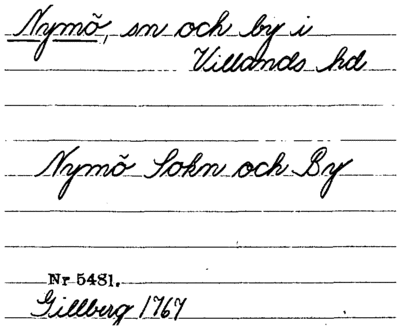 Nymö, sn och by i
Villands hd
Nymö Sokn och By
Nr 5481.
Gillberg 1767